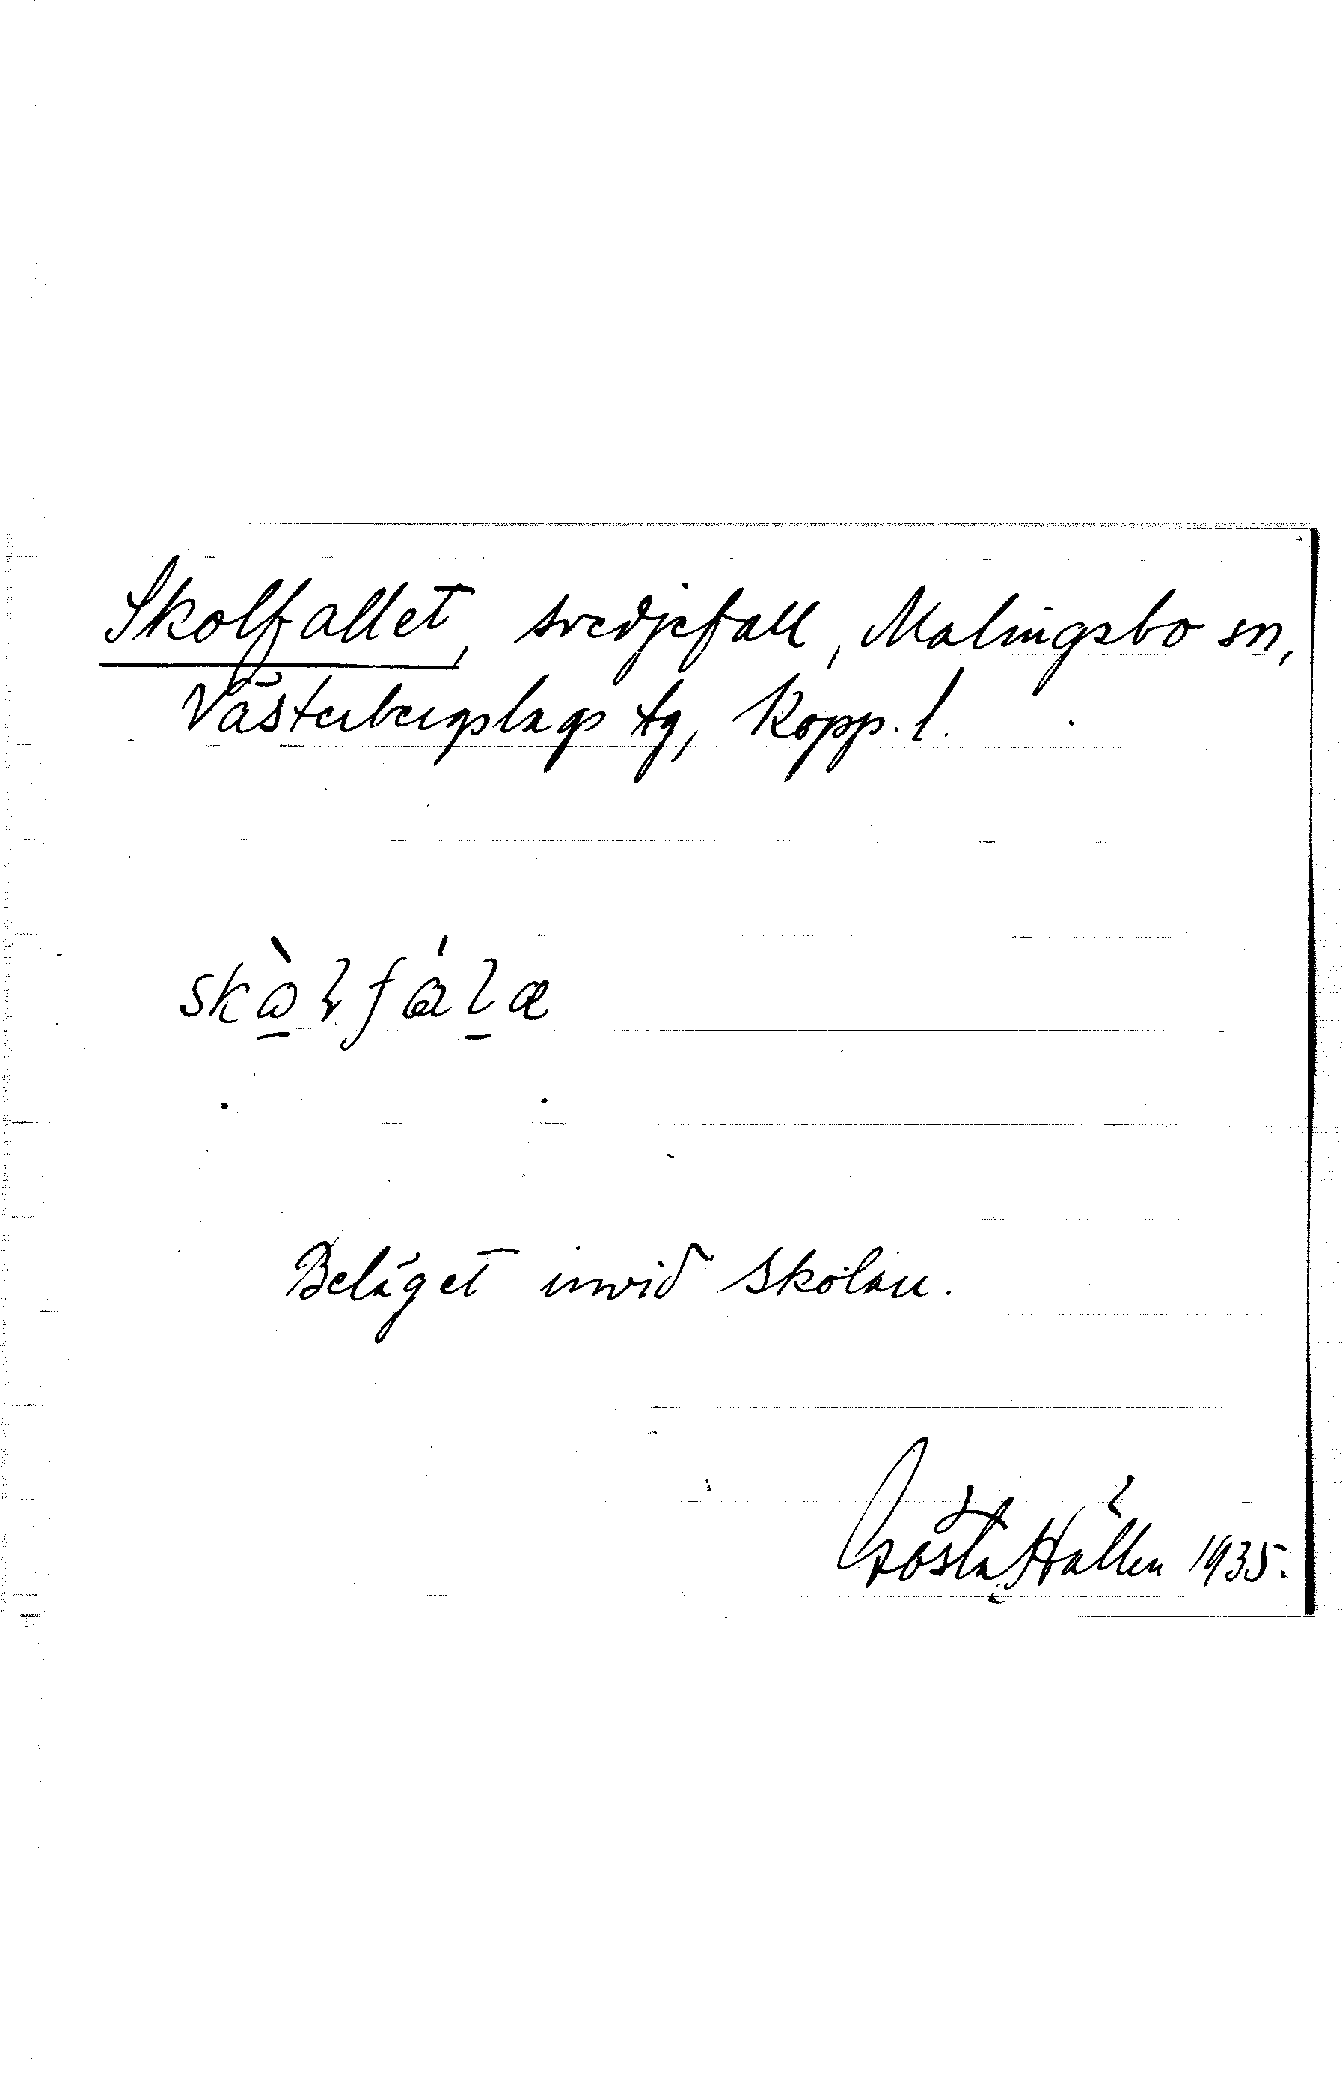 Skolfallet, svedjefall, Malingsbo sn,
Västerbergslags tg, Kopp. l.
skò̱ɭfáḻæ
Beläget invid skolan.
Gösta Hallén 1935.